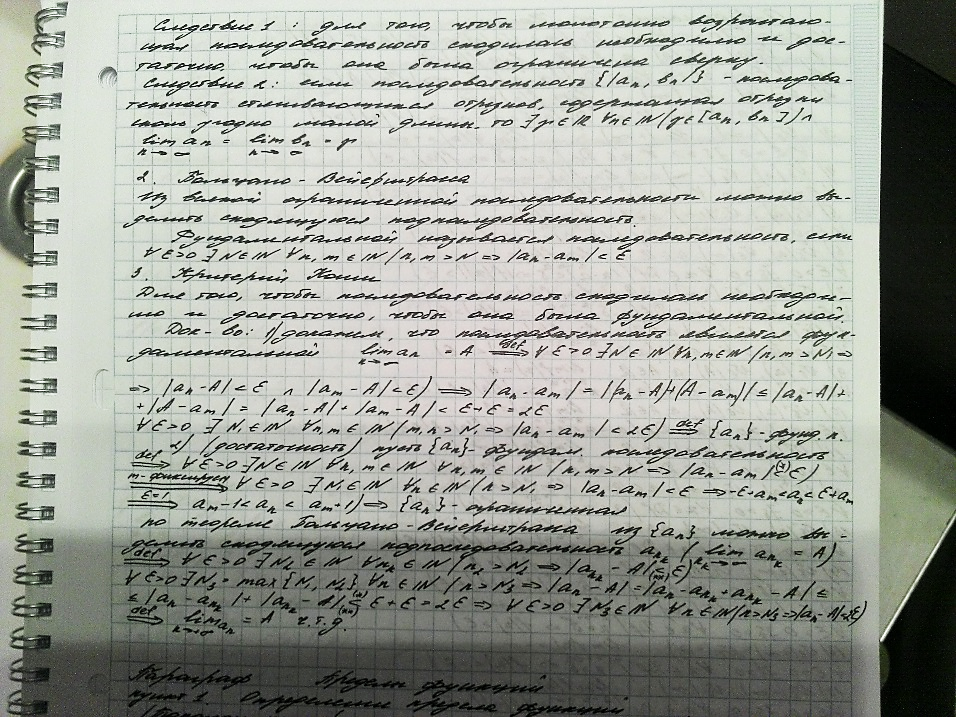 Следствие 1 : для того, чтобы монотонно возрастаю-
щая последовательность сходилась необходимо и дос-
таточно, чтобы она была ограничена сверху.
Следствие 2: если последовательность {[an, bn]} - последова-
тельность стягивающихся отрезков, содержащая отрезки
сколь угодно малой длины, то ∃ p ∈ ℝ ∀n ∈ ℕ (p ∈ [an, bn]) ∧
lim an = lim bn = p
n→∞ n→∞
2. Больцано - Вейерштрасса
Из всякой ограниченной последовательности можно вы-
делить сходящуюся подпоследовательность.
Фундаментальной называется последовательность, если
∀ε>0 ∃ N ∈ ℕ ∀n, m ∈ ℕ (n, m > N => |an - am| < ε
3. Критерий Коши
Для того, чтобы последовательность сходилась необходи-
мо и достаточно, чтобы она была фундаментальной.
Док-во: 1) докажем, что последовательность является фун-
даментальной lim an = A def ⟹ ∀ε>0 ∃N ∈ ℕ ∀n, m ∈ ℕ (n, m > N₁ =>
n→∞
=> |an - A| < ε ∧ |am - A| < ε) ⟹ |an - am| = |(an - A)+(A - am)| ≤ |an - A| +
+ |A - am| = |an - A| + |am - A| < ε+ε = 2ε
∀ε>0 ∃ N₁ ∈ ℕ ∀n, m ∈ ℕ (m, n > N₁ => |an - am| < 2ε) def ⟹ {an} - фунд. п.
2) (достаточность) пусть {an} - фундам. последовательность
def ⟹ ∀ε>0 ∃N ∈ ℕ ∀n, m ∈ ℕ ∀n, m ∈ ℕ (n, m > N => |an - am| (*) < ε)
m-фиксируем ⟹ ∀ε>0 ∃N₁ ∈ ℕ ∀n ∈ ℕ (n > N₁ => |an - am| < ε => -ε+am < an < ε+am
ε=1 ⟹ am - 1 < an < am + 1) => {an} - ограниченная
по теореме Больцано - Вейерштрасса из {an} можно вы-
делить сходящуюся подпоследовательность ank (lim ank = A)
nk→∞
def ⟹ ∀ε>0 ∃N₂ ∈ ℕ ∀nk ∈ ℕ (nk > N₂ => |ank - A| < (**) ε)
∀ε>0 ∃ N₃ = max {N₁, N₂} ∀n ∈ ℕ (n > N₃ => |an - A| = |an - ank + ank - A| ≤
≤ |an - ank| + |ank - A| (*) < (**) ε+ε = 2ε => ∀ε>0 ∃ N₃ ∈ ℕ ∀n ∈ ℕ (n > N₃ => |an - A| < 2ε)
def ⟹ lim an = A ч.т.д.
n→∞
Параграф Пределы функций
пункт 1. Определение предела функции